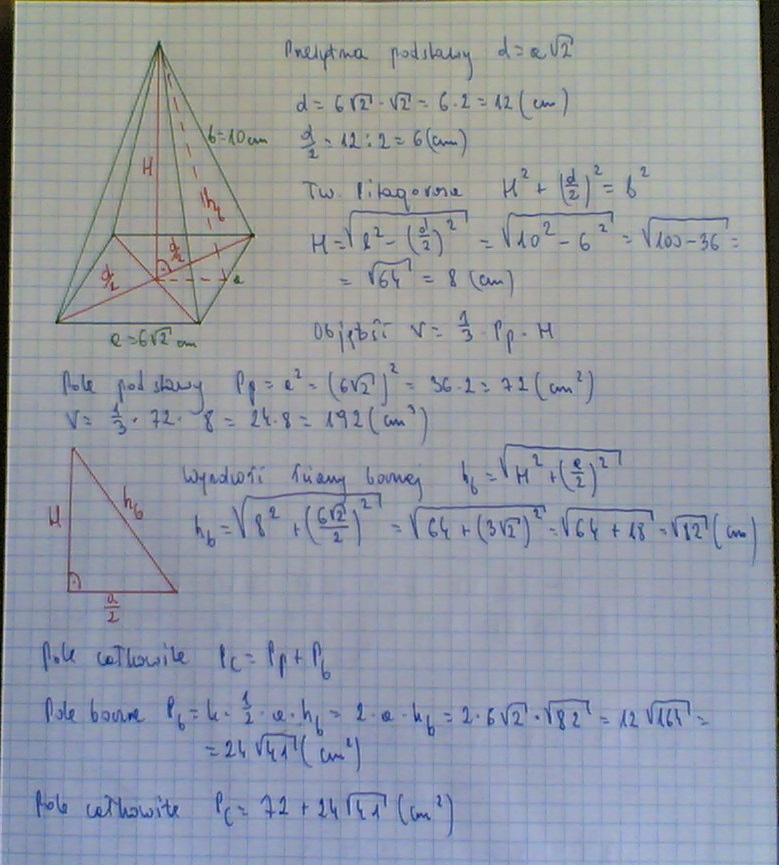 Przekątna podstawy d = a√2
d = 6√2 · √2 = 6 · 2 = 12 (cm)
d/2 = 12 : 2 = 6 (cm)
Tw. Pitagorasa H² + (d/2)² = b²
H = √(b² - (d/2)²) = √(10² - 6²) = √(100 - 36) =
= √64 = 8 (cm)
Objętość V = 1/3 · Pp · H
b = 10 cm
H
hb
d/2
d/2
a
a = 6√2 cm
Pole podstawy Pp = a² = (6√2)² = 36 · 2 = 72 (cm²)
V = 1/3 · 72 · 8 = 24 · 8 = 192 (cm³)
Wysokość ściany bocznej hb = √(H² + (a/2)²)
hb = √(8² + (6√2/2)²) = √(64 + (3√2)²) = √(64 + 18) = √82 (cm)
H
hb
a/2
Pole całkowite Pc = Pp + Pb
Pole boczne Pb = 4 · 1/2 · a · hb = 2 · a · hb = 2 · 6√2 · √82 = 12√164 =
= 24√41 (cm²)
Pole całkowite Pc = 72 + 24√41 (cm²)